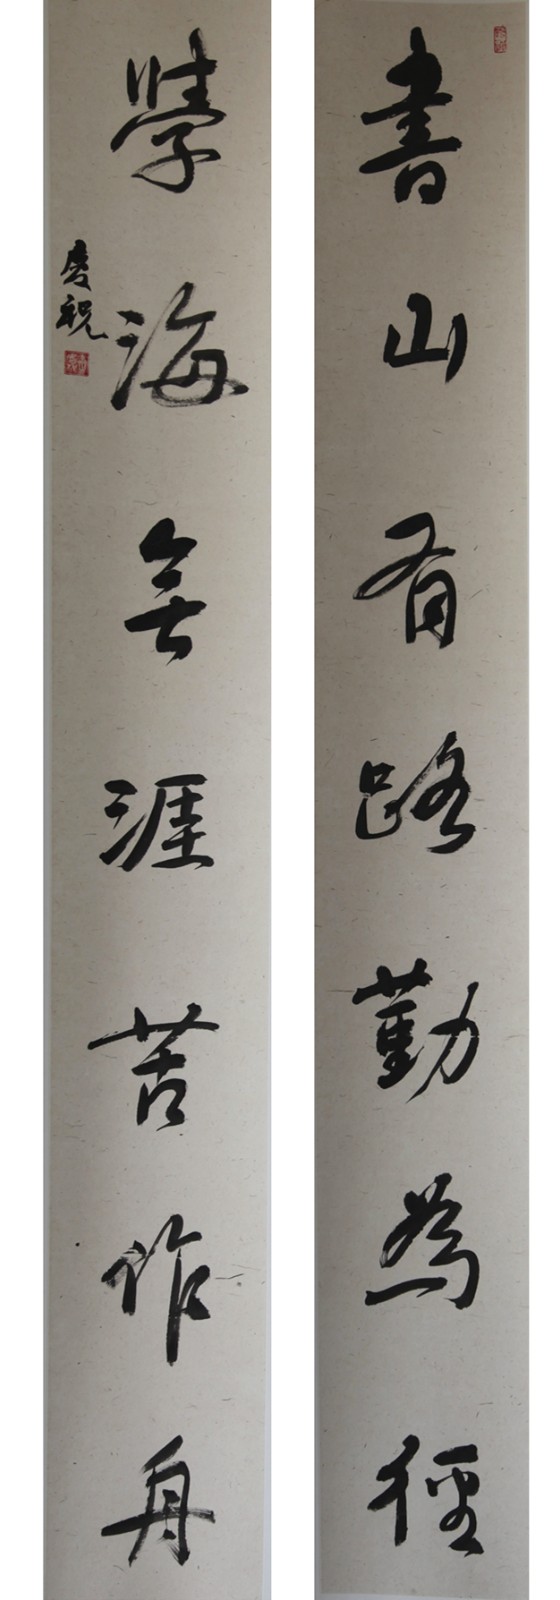 書山有路勤為徑
學海無涯苦作舟
慶祝